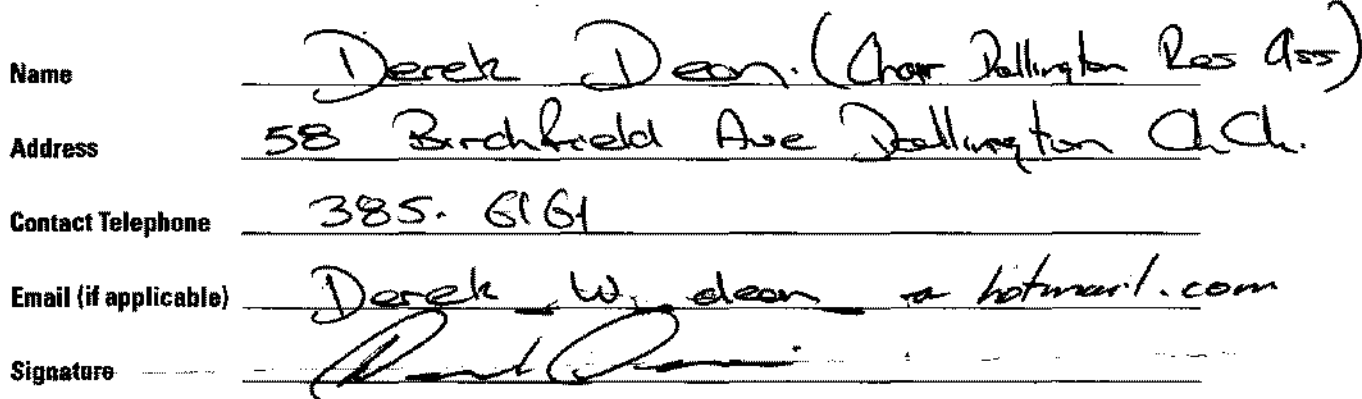 Name Derek Dean. (Chair Dallington Res Ass)
Address 58 Birchfield Ave Dallington Ch.Ch.
Contact Telephone 385. 6161
Email (if applicable) Derek _ W. _ dean _ a hotmail.com
Signature